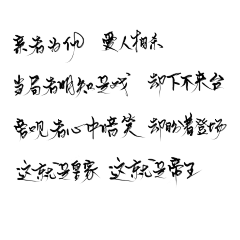 亲者为仇 爱人相杀
当局者明知是戏 却下不来台
旁观者心中暗笑 却盼着登场
这就是皇家 这就是帝王